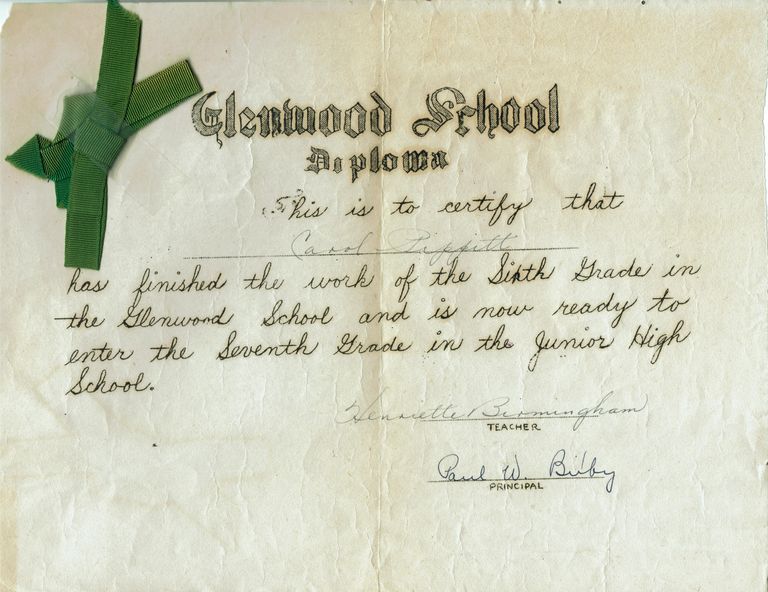 Glenwood School
Diploma
This is to certify that
Carol Pippitt
has finished the work of the Sixth Grade in
the Glenwood School and is now ready to
enter the Seventh Grade in the Junior High
School.
Henriette Birmingham
TEACHER
Paul W. Bixby
PRINCIPAL